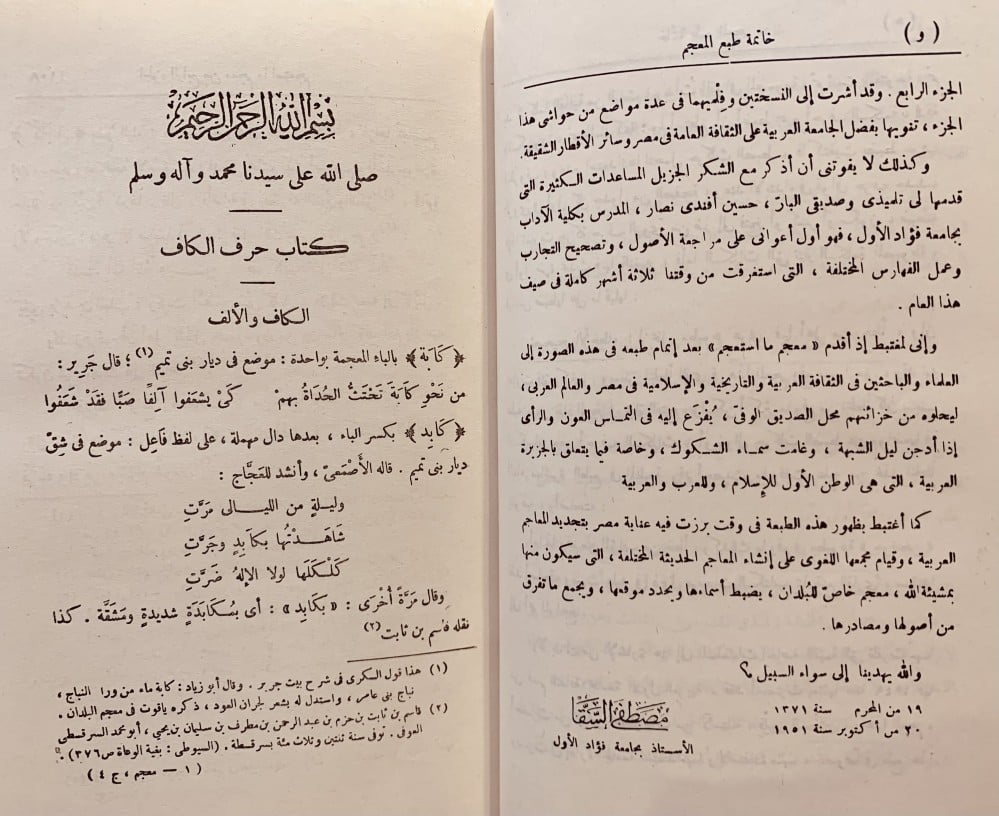 ( و )
خاتمة طبع المعجم
الجزء الرابع . وقد أشرت إلى النسختين وفِلْميهما فى عدة مواضع من حواشى هذا
الجزء ، تنويها بفضل الجامعة العربية على الثقافة العامة فى مصر وسائر الأقطار الشقيقة.
وكذلك لا يفوتنى أن أذكر مع الشكر الجزيل المساعدات الكثيرة التى
قدمها لى تلميذى وصديقى البارّ ، حسين أفندى نصار ، المدرس بكلية الآداب
بجامعة فؤاد الأول ، فهو أول أعوانى على مراجعة الأصول ، وتصحيح التجارب
وعمل الفهارس المختلفة ، التى استغرقت من وقتنا ثلاثة أشهر كاملة فى صيف
هذا العام .
وإنى لمغتبط إذ أقدم « معجم ما استعجم » بعد إتمام طبعه فى هذه الصورة إلى
العلماء والباحثين فى الثقافة العربية والتاريخية والإسلامية فى مصر والعالم العربى ،
ليحلوه من خزائنهم محل الصديق الوفىّ ، يُفْزَع إليه فى التماس العون والرأى
إذا أدجن ليل الشبهة ، وغامت سماء الشكوك ، وخاصة فيما يتعلق بالجزيرة
العربية ، التى هى الوطن الأول للإسلام ، وللعرب والعربية
كما أغتبط بظهور هذه الطبعة فى وقت برزت فيه عناية مصر بتجديد المعاجم
العربية ، وقيام مجمعها اللغوى على إنشاء المعاجم الحديثة المختلفة ، التى سيكون منها
بمشيئة الله ، معجم خاصّ للبُلدان ، يضبط أسماءها ويحدد موقعها ، ويجمع ما تفرق
من أصولها ومصادرها .
والله يهدينا إلى سواء السبيل ؟
١٩ من المحرم سنة ١٣٧١
٢٠ من أكتوبر سنة ١٩٥١
مصطفى السقا
الأستاذ بجامعة فؤاد الأول
بسم الله الرحمن الرحيم
صلى الله على سيدنا محمد وآله وسلم
كتاب حرف الكاف
الكاف والألف
﴿ كَابَة ﴾ بالباء المعجمة بواحدة : موضع فى ديار بنى تميم (١) ؛ قال جَرِير :
من نَحْوِ كَابَةَ تَحْتَثُّ الحُدَاةُ بهمْ كَىْ يشعَفوا آلِفًا صَبًّا فقَدْ شَعَفُوا
﴿ كَابِد ﴾ بكسر الباء ، بعدها دال مهملة ، على لفظ فاعِل : موضع فى شِقّ
ديار بنى تميم . قاله الأَصْمَعىّ ، وأنشد للعَجَّاج :
وليلةٍ من الليالى مَرَّتِ
شَاهَدْتُها بكابَدٍ وجَرَّتِ
كَلْكَلَها لولا الإلهُ ضَرَّتِ
وقال مَرَّةً أُخْرَى : « بكابِد » : أى بمُكَابَدَةٍ شديدةٍ ومَشَقَّة . كذا
نقله قاسم بن ثابت(٢)
(١) هذا قول السكرى فى شرح بيت جرير . وقال أبو زياد : كابة ماء من ورا النباج ،
نباج بنى عامر ، واستدل له بشعر لجران العود ، ذكره ياقوت فى معجم البلدان .
(٢) قاسم بن ثابت بن حزم بن عبد الرحمن بن مطرف بن سليمان بن يحيى ، أبو محمد السرقسطى
العوفى . توفى سنة ثنتين وثلاث مئة بسرقسطة . (السيوطى : بغية الوعاة ص٣٧٦) .
( ١ — معجم ، ج ٤ )